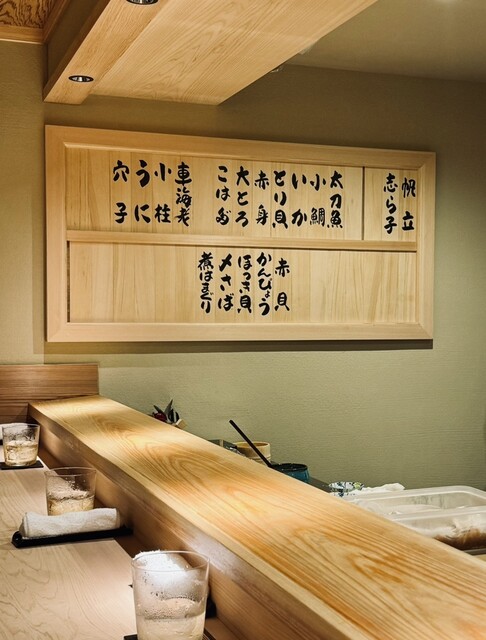 帆立
志ら子
太刀魚
小鯛
いか
とり貝
赤身
大とろ
こはだ
車海老
小柱
うに
穴子
赤貝
かんぴょう
ほっき貝
〆さば
煮はまぐり